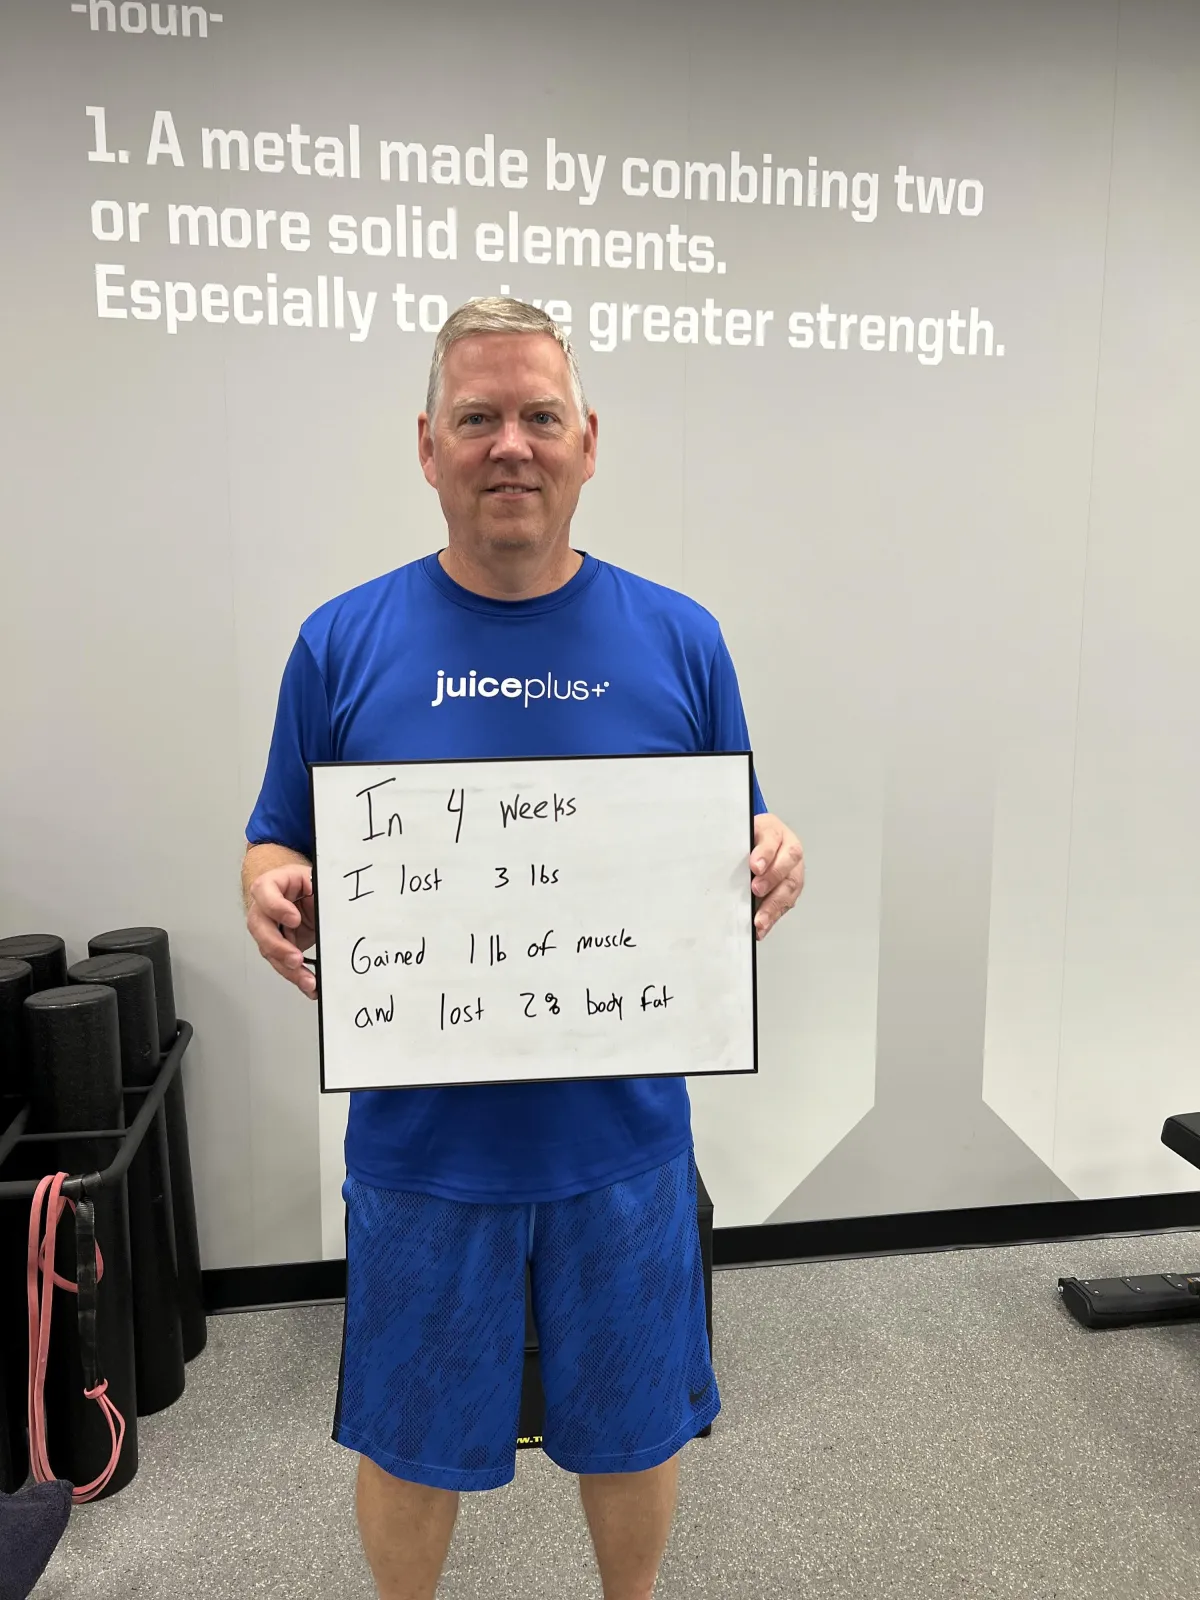 -noun-
1. A metal made by combining two
or more solid elements.
Especially to greater strength.
juiceplus+
In 4 weeks
I lost 3 lbs
Gained 1 lb of muscle
and lost 2% body fat